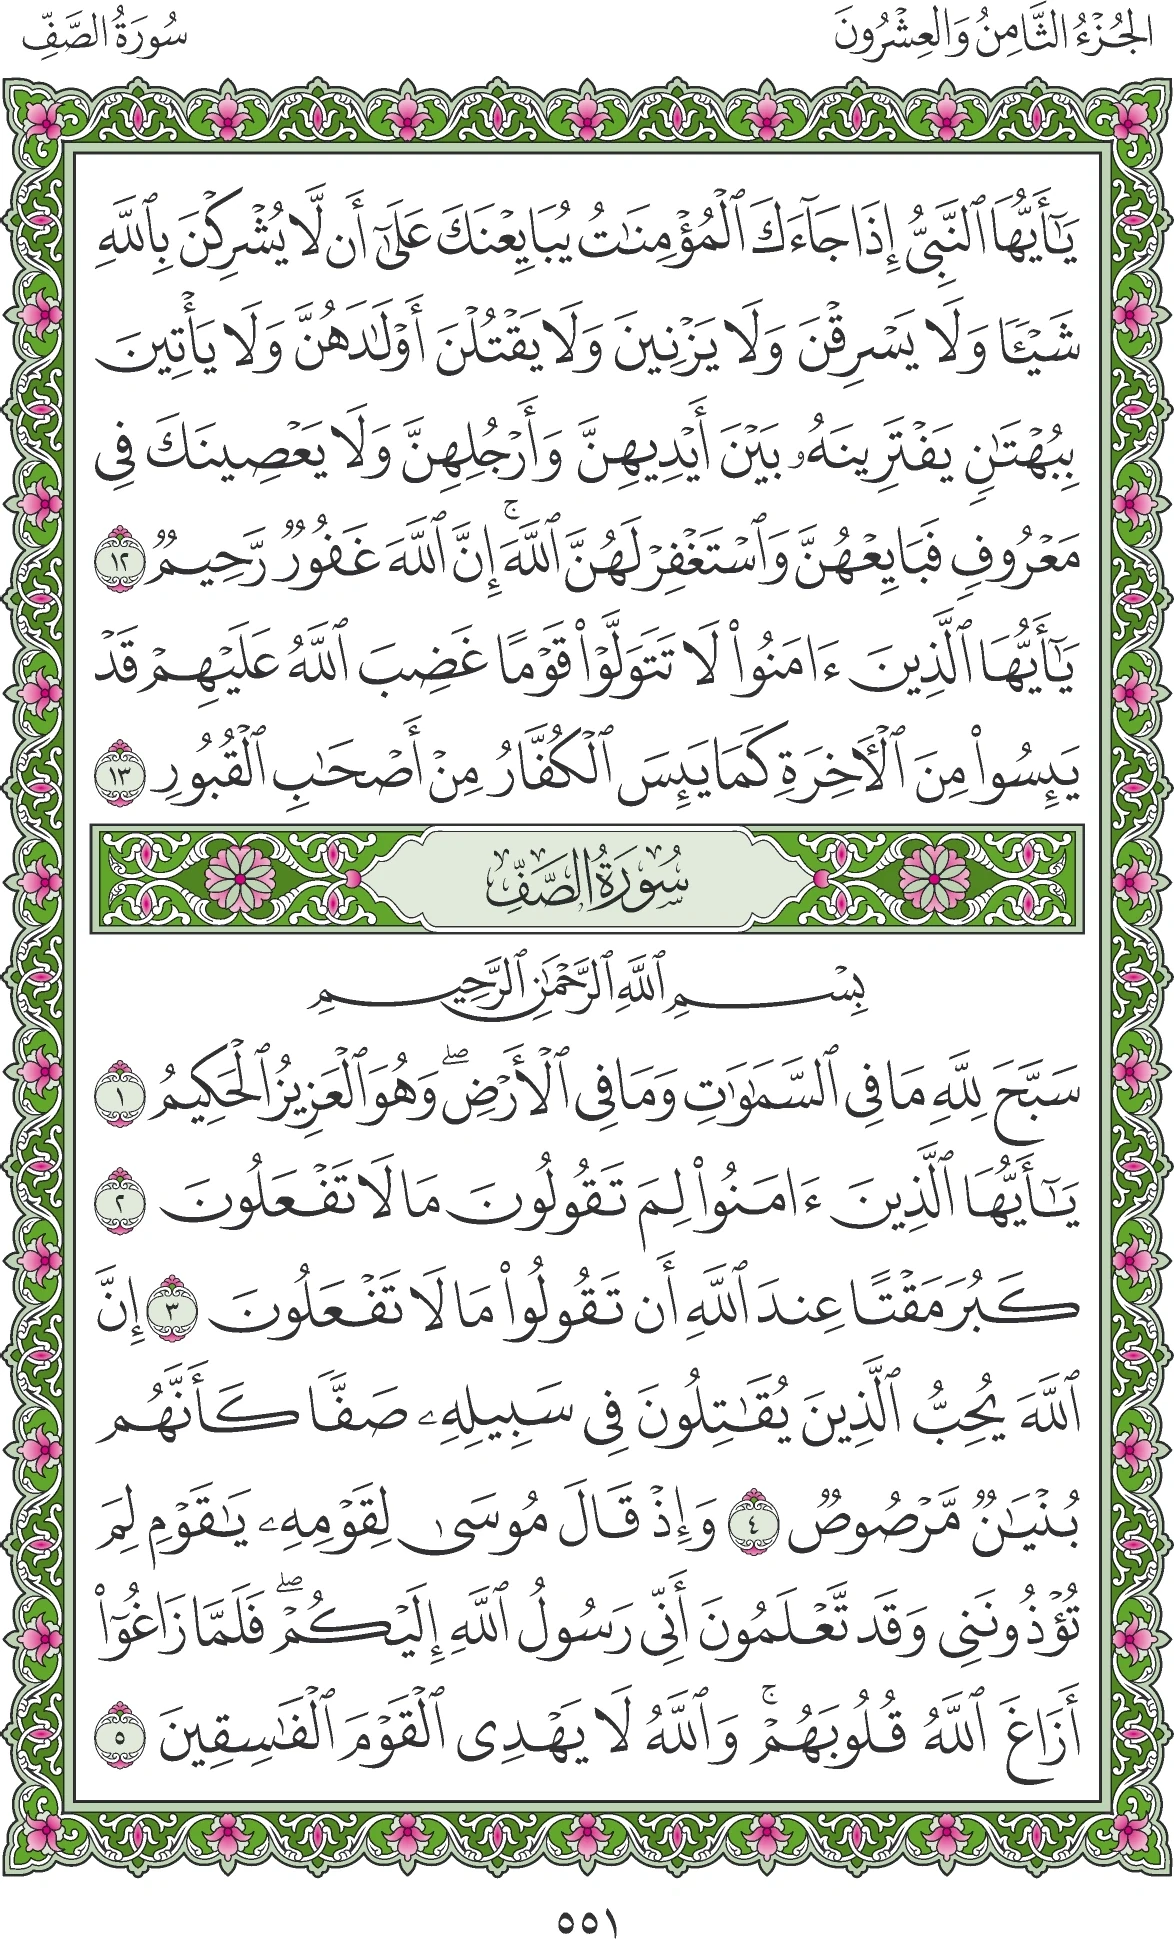 الجُزْءُ الثَّامِنُ وَالعِشْرُونَ
سُورَةُ الصَّفِّ
يَـٰٓأَيُّهَا ٱلنَّبِىُّ إِذَا جَآءَكَ ٱلْمُؤْمِنَـٰتُ يُبَايِعْنَكَ عَلَىٰٓ أَن لَّا يُشْرِكْنَ بِٱللَّهِ
شَيْـًٔا وَلَا يَسْرِقْنَ وَلَا يَزْنِينَ وَلَا يَقْتُلْنَ أَوْلَـٰدَهُنَّ وَلَا يَأْتِينَ
بِبُهْتَـٰنٍ يَفْتَرِينَهُۥ بَيْنَ أَيْدِيهِنَّ وَأَرْجُلِهِنَّ وَلَا يَعْصِينَكَ فِى
مَعْرُوفٍ فَبَايِعْهُنَّ وَٱسْتَغْفِرْ لَهُنَّ ٱللَّهَ ۚ إِنَّ ٱللَّهَ غَفُورٌ رَّحِيمٌ ١٢
يَـٰٓأَيُّهَا ٱلَّذِينَ ءَامَنُوا۟ لَا تَتَوَلَّوْا۟ قَوْمًا غَضِبَ ٱللَّهُ عَلَيْهِمْ قَدْ
يَئِسُوا۟ مِنَ ٱلْـَٔاخِرَةِ كَمَا يَئِسَ ٱلْكُفَّارُ مِنْ أَصْحَـٰبِ ٱلْقُبُورِ ١٣
سُورَةُ الصَّفِّ
بِسْمِ ٱللَّهِ ٱلرَّحْمَـٰنِ ٱلرَّحِيمِ
سَبَّحَ لِلَّهِ مَا فِى ٱلسَّمَـٰوَٰتِ وَمَا فِى ٱلْأَرْضِ ۖ وَهُوَ ٱلْعَزِيزُ ٱلْحَكِيمُ ١
يَـٰٓأَيُّهَا ٱلَّذِينَ ءَامَنُوا۟ لِمَ تَقُولُونَ مَا لَا تَفْعَلُونَ ٢
كَبُرَ مَقْتًا عِندَ ٱللَّهِ أَن تَقُولُوا۟ مَا لَا تَفْعَلُونَ ٣ إِنَّ
ٱللَّهَ يُحِبُّ ٱلَّذِينَ يُقَـٰتِلُونَ فِى سَبِيلِهِۦ صَفًّا كَأَنَّهُم
بُنْيَـٰنٌ مَّرْصُوصٌ ٤ وَإِذْ قَالَ مُوسَىٰ لِقَوْمِهِۦ يَـٰقَوْمِ لِمَ
تُؤْذُونَنِى وَقَد تَّعْلَمُونَ أَنِّى رَسُولُ ٱللَّهِ إِلَيْكُمْ ۖ فَلَمَّا زَاغُوٓا۟
أَزَاغَ ٱللَّهُ قُلُوبَهُمْ ۚ وَٱللَّهُ لَا يَهْدِى ٱلْقَوْمَ ٱلْفَـٰسِقِينَ ٥
٥٥١